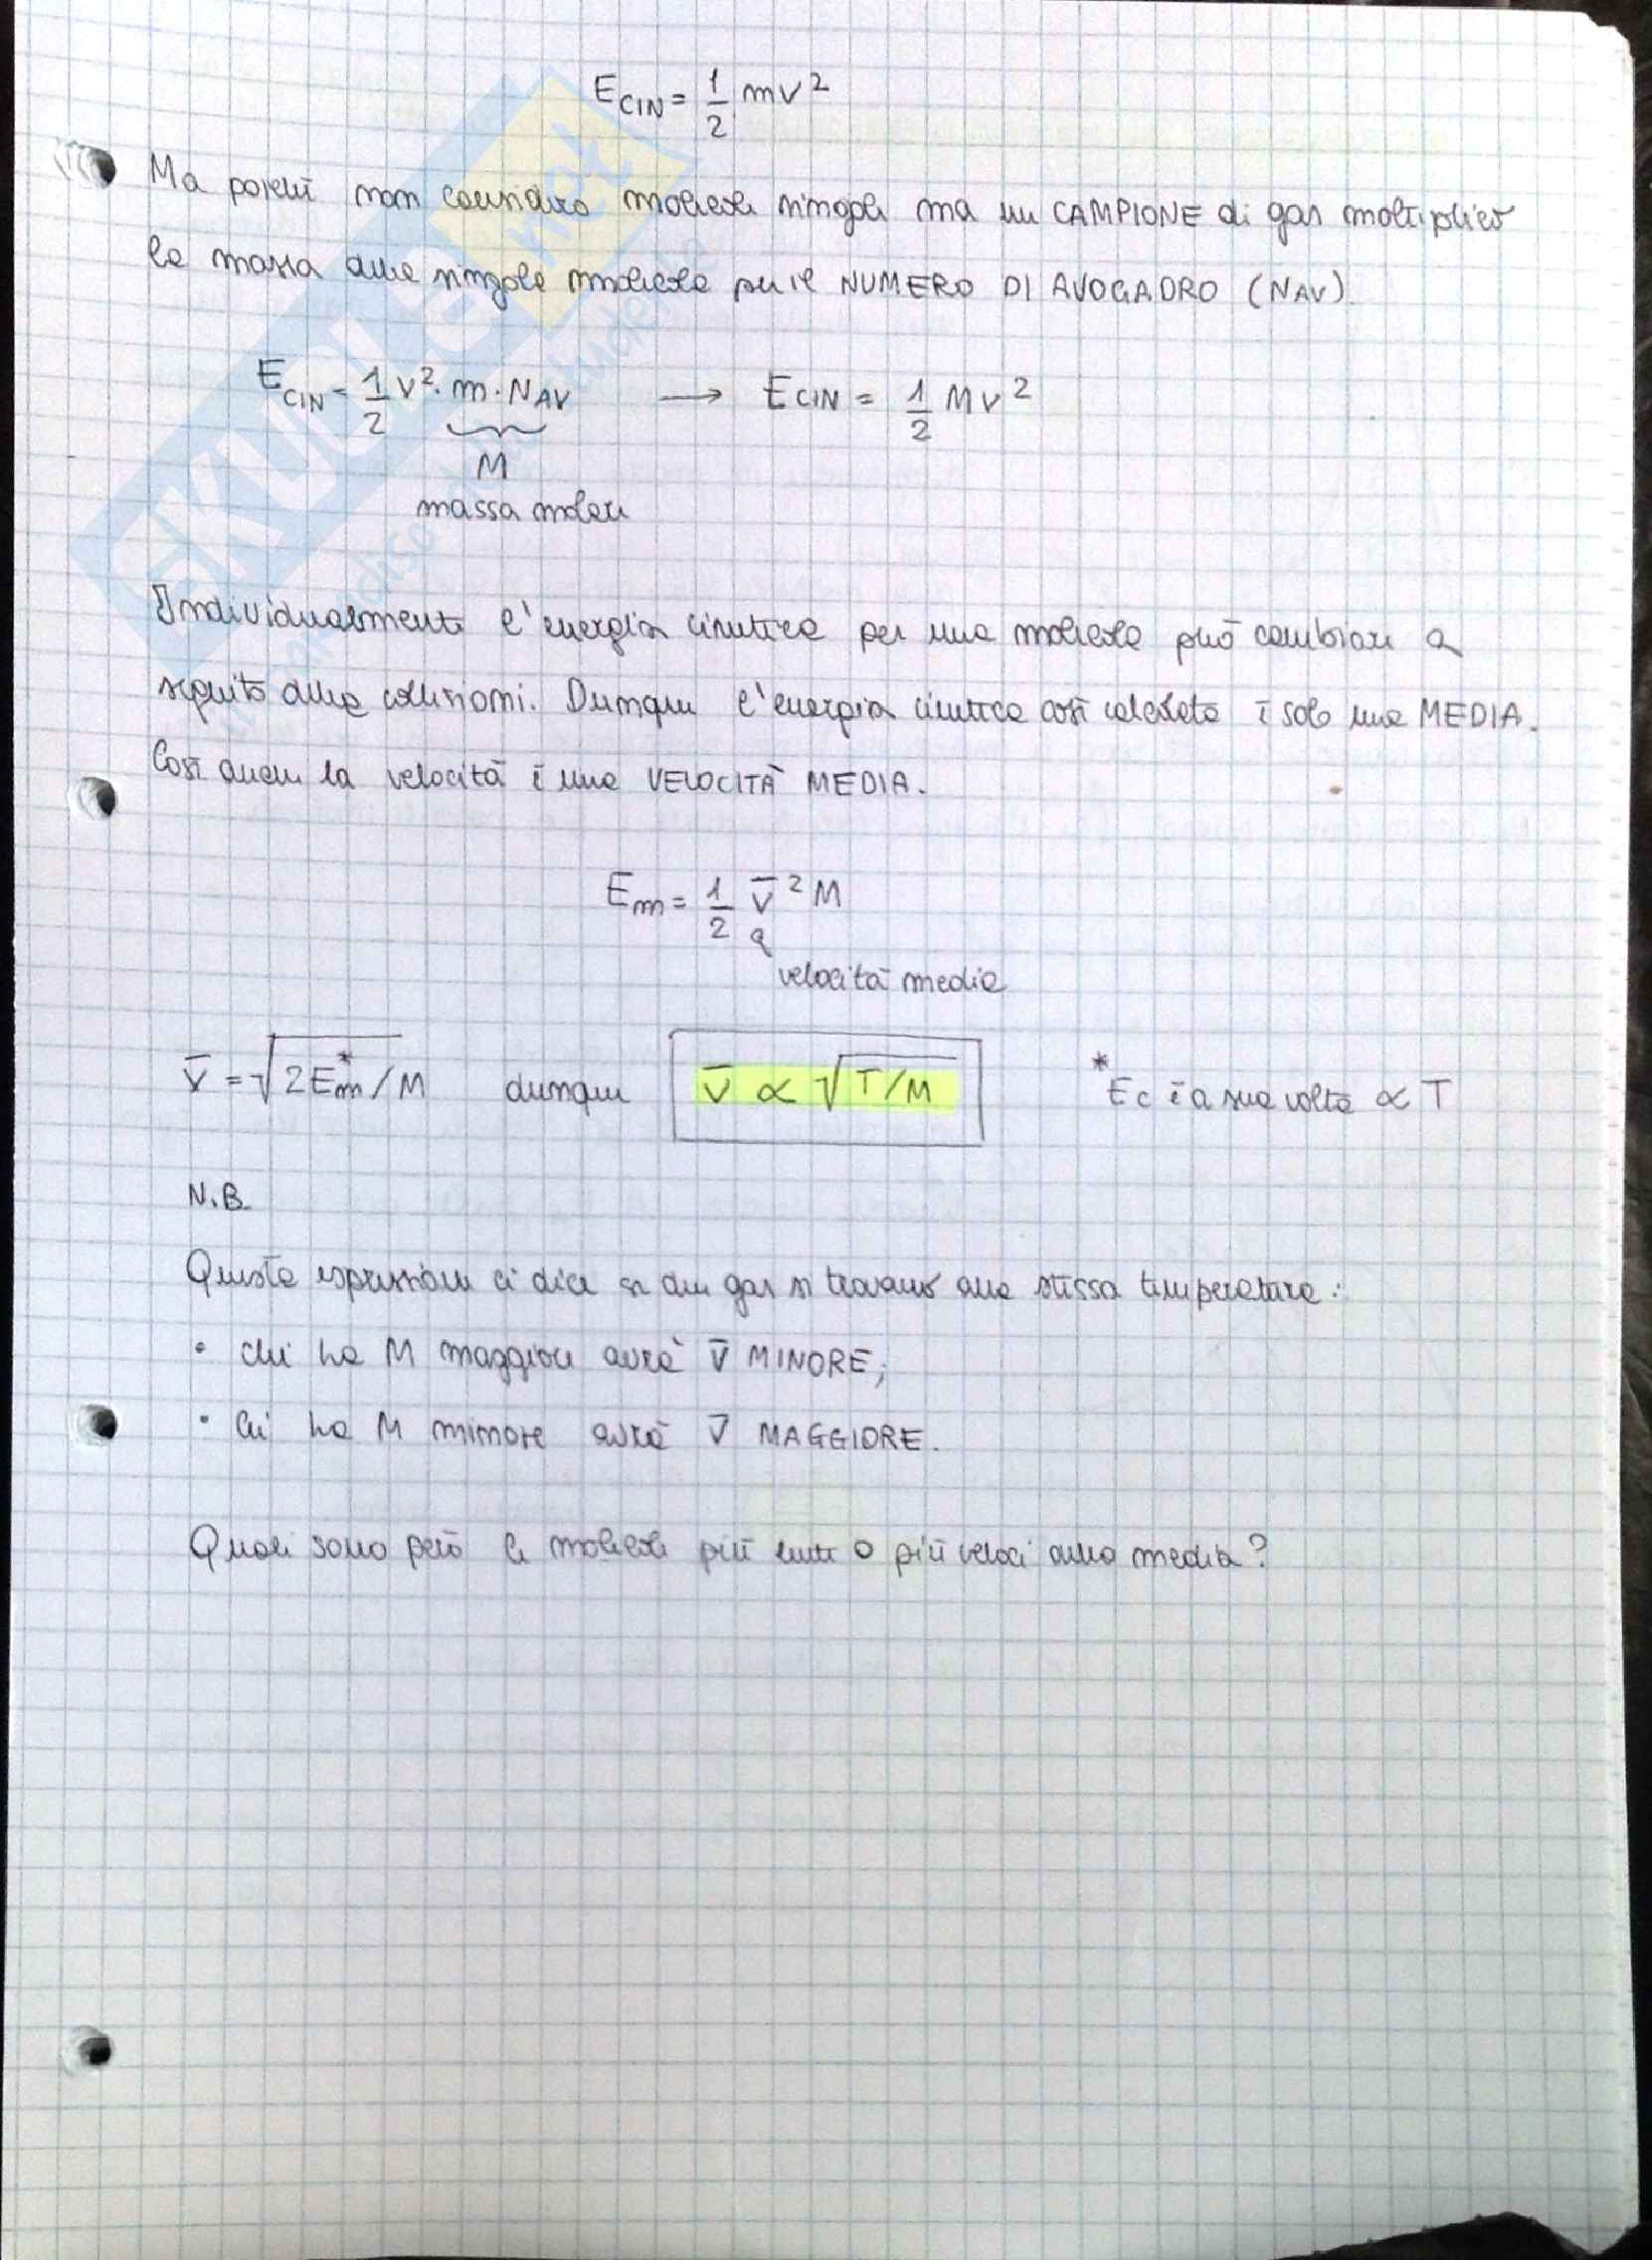 E_CIN = 1/2 mv²
Ma poiché non considero molecole singole ma un CAMPIONE di gas moltiplico
la massa delle singole molecole per il NUMERO DI AVOGADRO (NAV)
E_CIN = 1/2 v² · m · NAV → E_CIN = 1/2 Mv²
M
massa molare
Individualmente l'energia cinetica per una molecola può cambiare a
seguito delle collisioni. Dunque l'energia cinetica così calcolata è solo una MEDIA.
Così anche la velocità è una VELOCITÀ MEDIA.
Em = 1/2 v̄² M
velocità media
v̄ = √2Em*/M dunque v̄ ∝ √T/M *Ec è a sua volta ∝ T
N.B.
Questa espressione ci dice se due gas si trovano alla stessa temperatura:
• chi ha M maggiore avrà v̄ MINORE;
• chi ha M minore avrà v̄ MAGGIORE.
Quali sono però le molecole più lente o più veloci della media?
SKUOLA.net